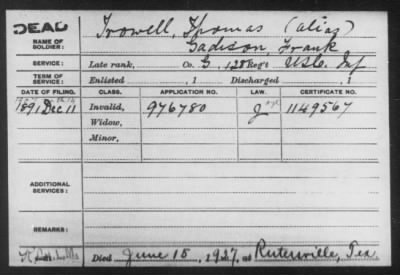 DEAD Trowell, Thomas (alias)
NAME OF SOLDIER: Gadison, Frank
SERVICE: Late rank, Co. G, 128 Reg't U.S.C. Inf
TERM OF SERVICE: Enlisted , 1 Discharged , 1
DATE OF FILING. CLASS. APPLICATION NO. LAW. CERTIFICATE NO.
1891 Dec 11 Invalid, 976780 1149567
Widow,
Minor,
ADDITIONAL SERVICES:
REMARKS:
Died June 15, 1927, at Rutersville, Tex.